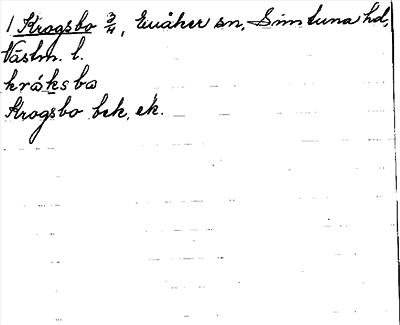 1 Krogsbo 3/4, Enåker sn, Simtuna hd,
Västm. l.
kråksbo
Krogsbo bek. ek.